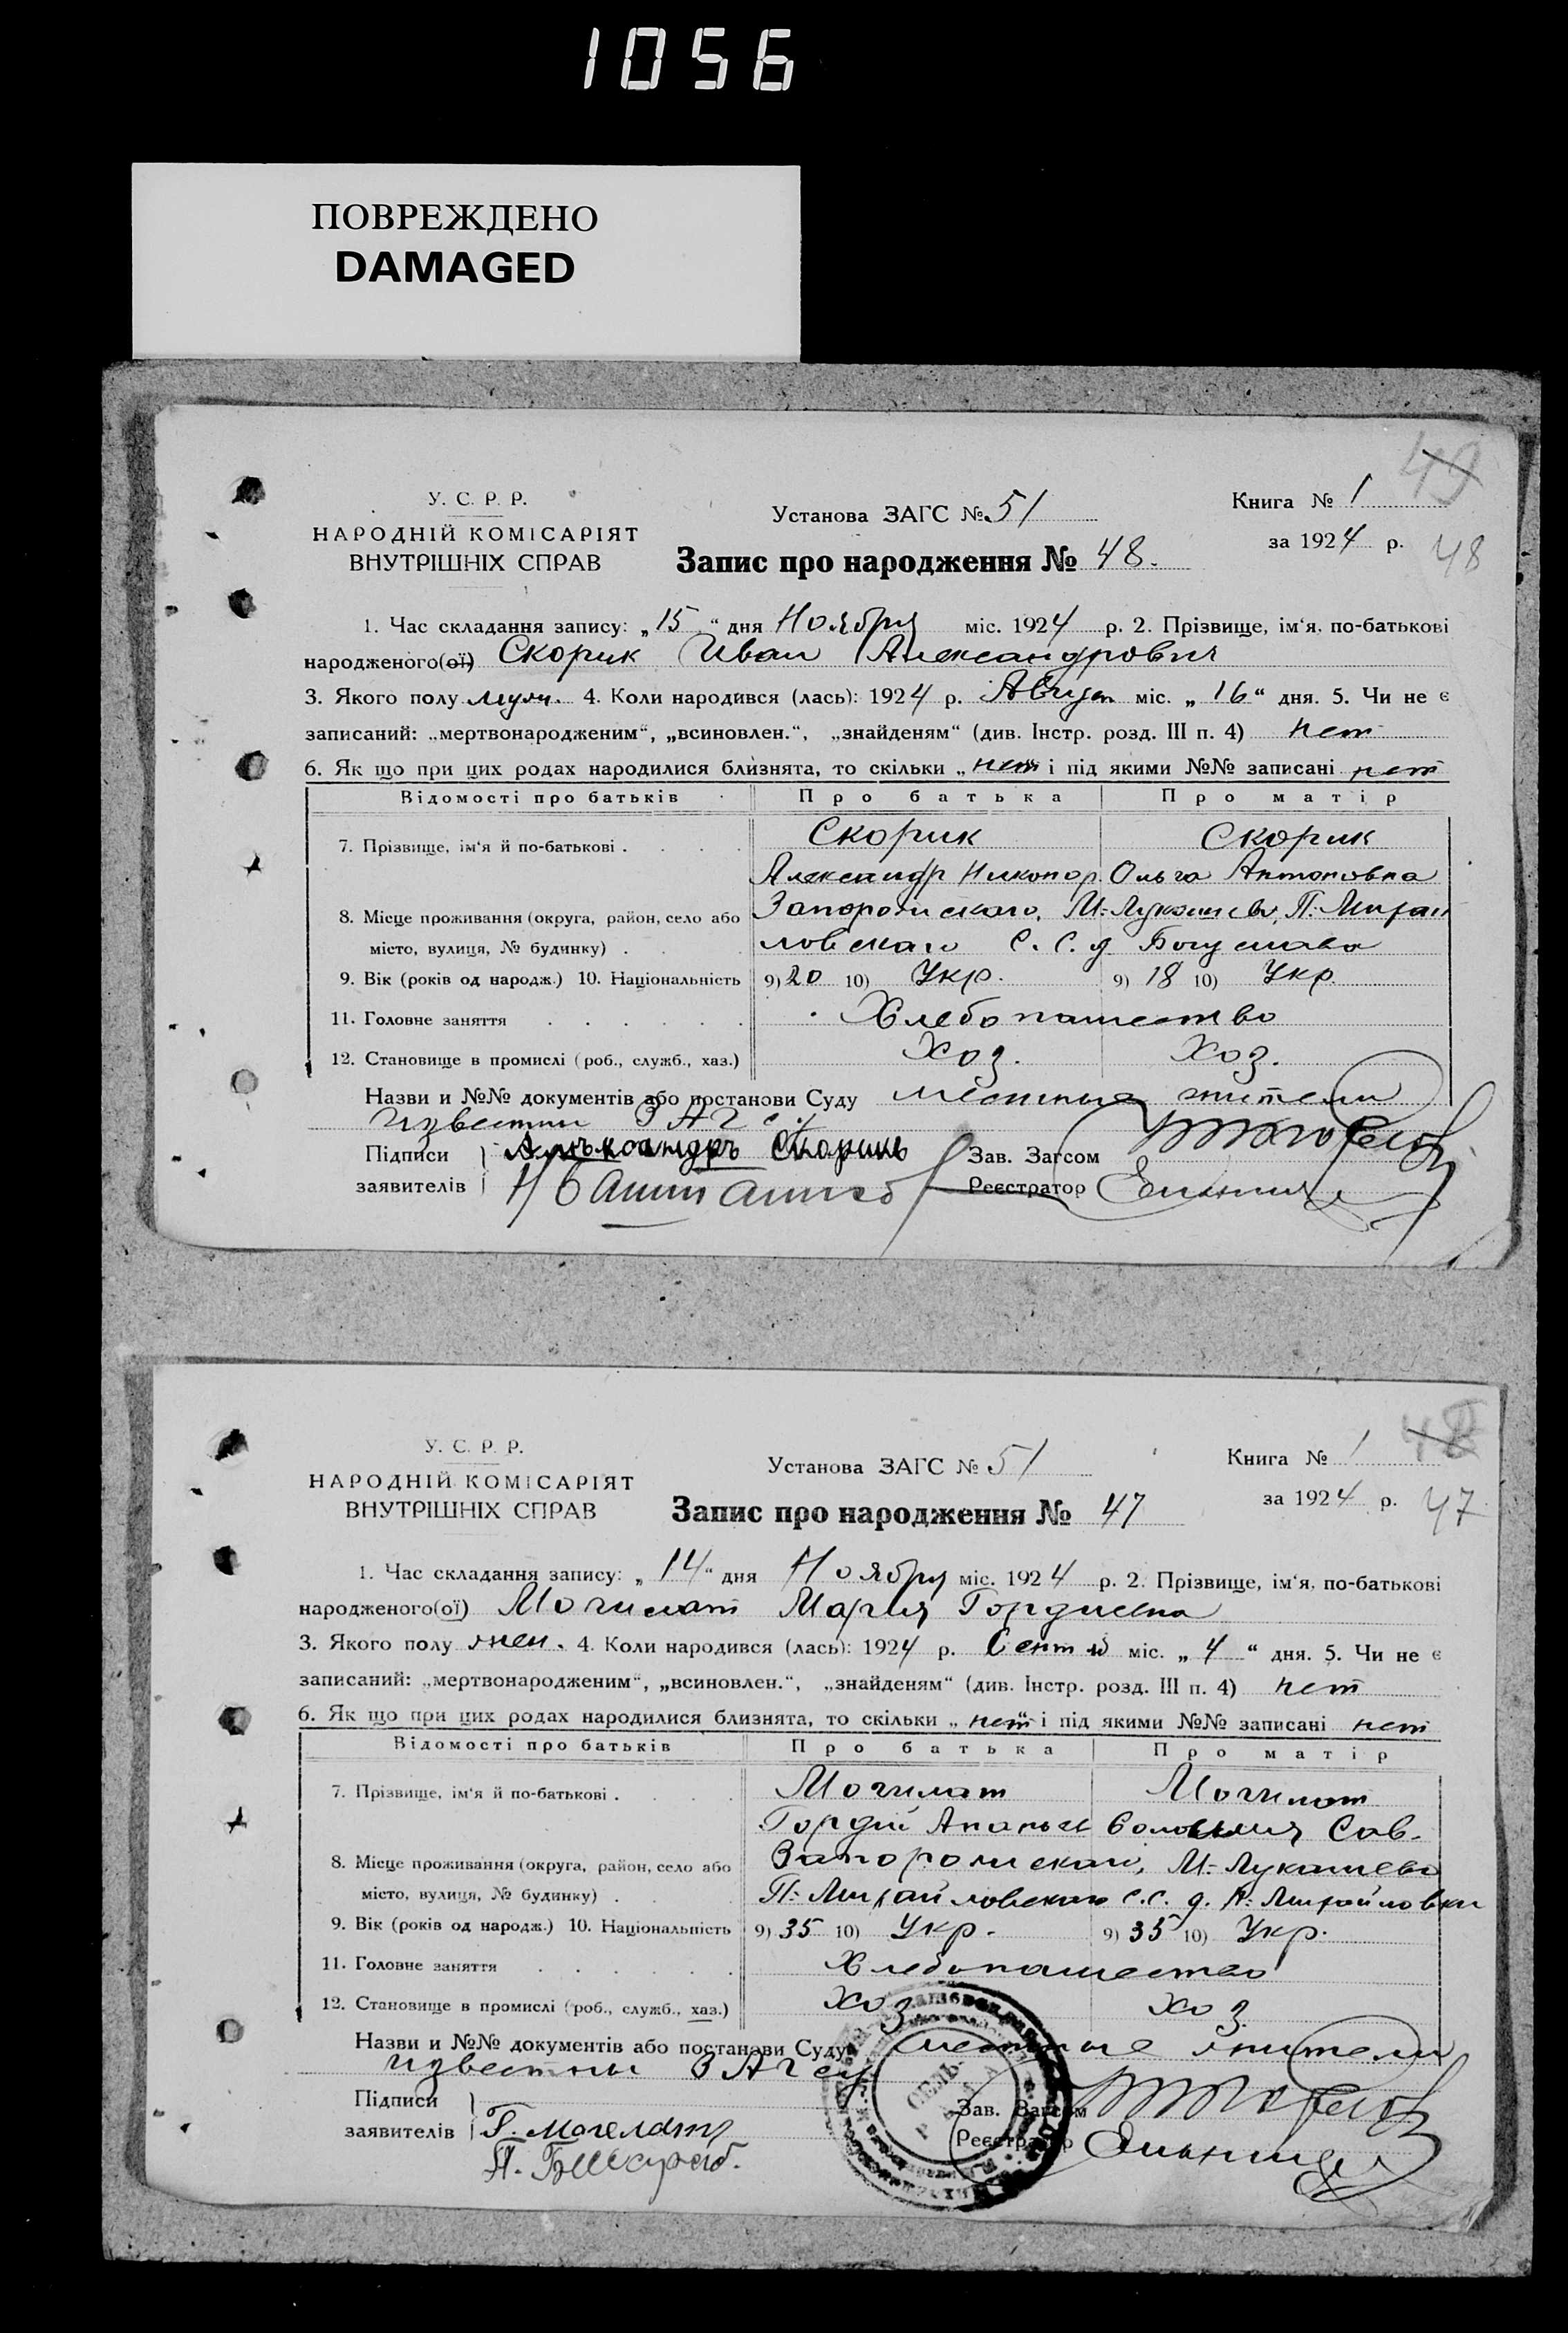 1056
ПОВРЕЖДЕНО
DAMAGED
49
У. С. Р. Р.
НАРОДНІЙ КОМІСАРІЯТ
ВНУТРІШНІХ СПРАВ
Установа ЗАГС № 51
Книга № 1
за 1924 р. 48
Запис про народження № 48.
1. Час складання запису: „15“ дня Ноября міс. 1924 р. 2. Прізвище, ім‘я, по-батькові
народженого(ої) Скорик Иван Александрович
3. Якого полу муж. 4. Коли народився (лась): 1924 р. Август міс. „16“ дня. 5. Чи не є
записаний: „мертвонародженим“, „всиновлен.“, „знайденям“ (див. Інстр. розд. III п. 4) нет
6. Як що при цих родах народилися близнята, то скільки „нет“ і під якими №№ записані нет
Відомості про батьків Про батька Про матір
7. Прізвище, ім‘я й по-батькові . . . . Скорик Скорик
Александр Никонор. Ольга Антоновна
8. Місце проживання (округа, район, село або Запорожскаго, М: Лукашево, П: Михай
місто, вулиця, № будинку) . . ловскаго С. С. д Богуслава
9. Вік (років од народж.) 10. Національність 9) 20 10) Укр. 9) 18 10) Укр.
11. Головне заняття . . . . . . Хлебопашество
12. Становище в промислі (роб., служб., хаз.) Хоз. Хоз.
Назви и №№ документів або постанови Суду местные жители
известны ЗАГсу
Підписи Алъксандръ Скорикъ Зав. Загсом
заявителів Реєстратор
48
У. С. Р. Р.
НАРОДНІЙ КОМІСАРІЯТ
ВНУТРІШНІХ СПРАВ
Установа ЗАГС № 51
Книга № 1
за 1924 р. 47
Запис про народження № 47
1. Час складання запису: „14“ дня Ноября міс. 1924 р. 2. Прізвище, ім‘я, по-батькові
народженого(ої) Могилат Мария Гордиевна
3. Якого полу жен. 4. Коли народився (лась): 1924 р. Сент міс. „4“ дня. 5. Чи не є
записаний: „мертвонародженим“, „всиновлен.“, „знайденям“ (див. Інстр. розд. III п. 4) нет
6. Як що при цих родах народилися близнята, то скільки „нет“ і під якими №№ записані нет
Відомості про батьків Про батька Про матір
7. Прізвище, ім‘я й по-батькові . . . . Могилат Могилат
Гордій Ананьев Соломия Сав.
8. Місце проживання (округа, район, село або Запорожскаго, М: Лукашево
місто, вулиця, № будинку) . . П: Михайловскаго С.С. д. Н: Михайловки
9. Вік (років од народж.) 10. Національність 9) 35 10) Укр. 9) 35 10) Укр.
11. Головне заняття . . . . . . Хлебопашество
12. Становище в промислі (роб., служб., хаз.) Хоз Хоз
Назви и №№ документів або постанови Суду местные жители
известны ЗАГсу
Підписи Зав. Загсом
заявителів Г. Могелат Реєстратор